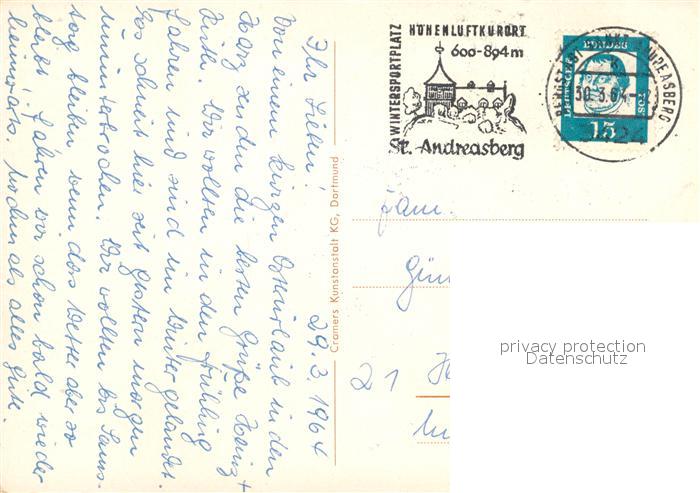 WINTERSPORTPLATZ
HÖHENLUFTKURORT
600-894 m
St. Andreasberg
ANDREASBERG
30.3.64
DEUTSCHE BUNDESPOST
15
29.3.1964
Ihr Lieben!
Von einem kurzen Osterurlaub in den
Harz senden die besten Grüße Heinz +
Ruth. Wir wollten in den Frühling
fahren und sind im Winter gelandet.
Es schneit hier seit gestern morgen
ununterbrochen. Wir wollten bis Sams-
tag bleiben wenn das Wetter aber so
bleibt, fahren wir schon bald wieder
heimwärts. Nochmals alles Gute.
Cramers Kunstanstalt KG, Dortmund
Fam.
Gün
21 H
privacy protection
Datenschutz